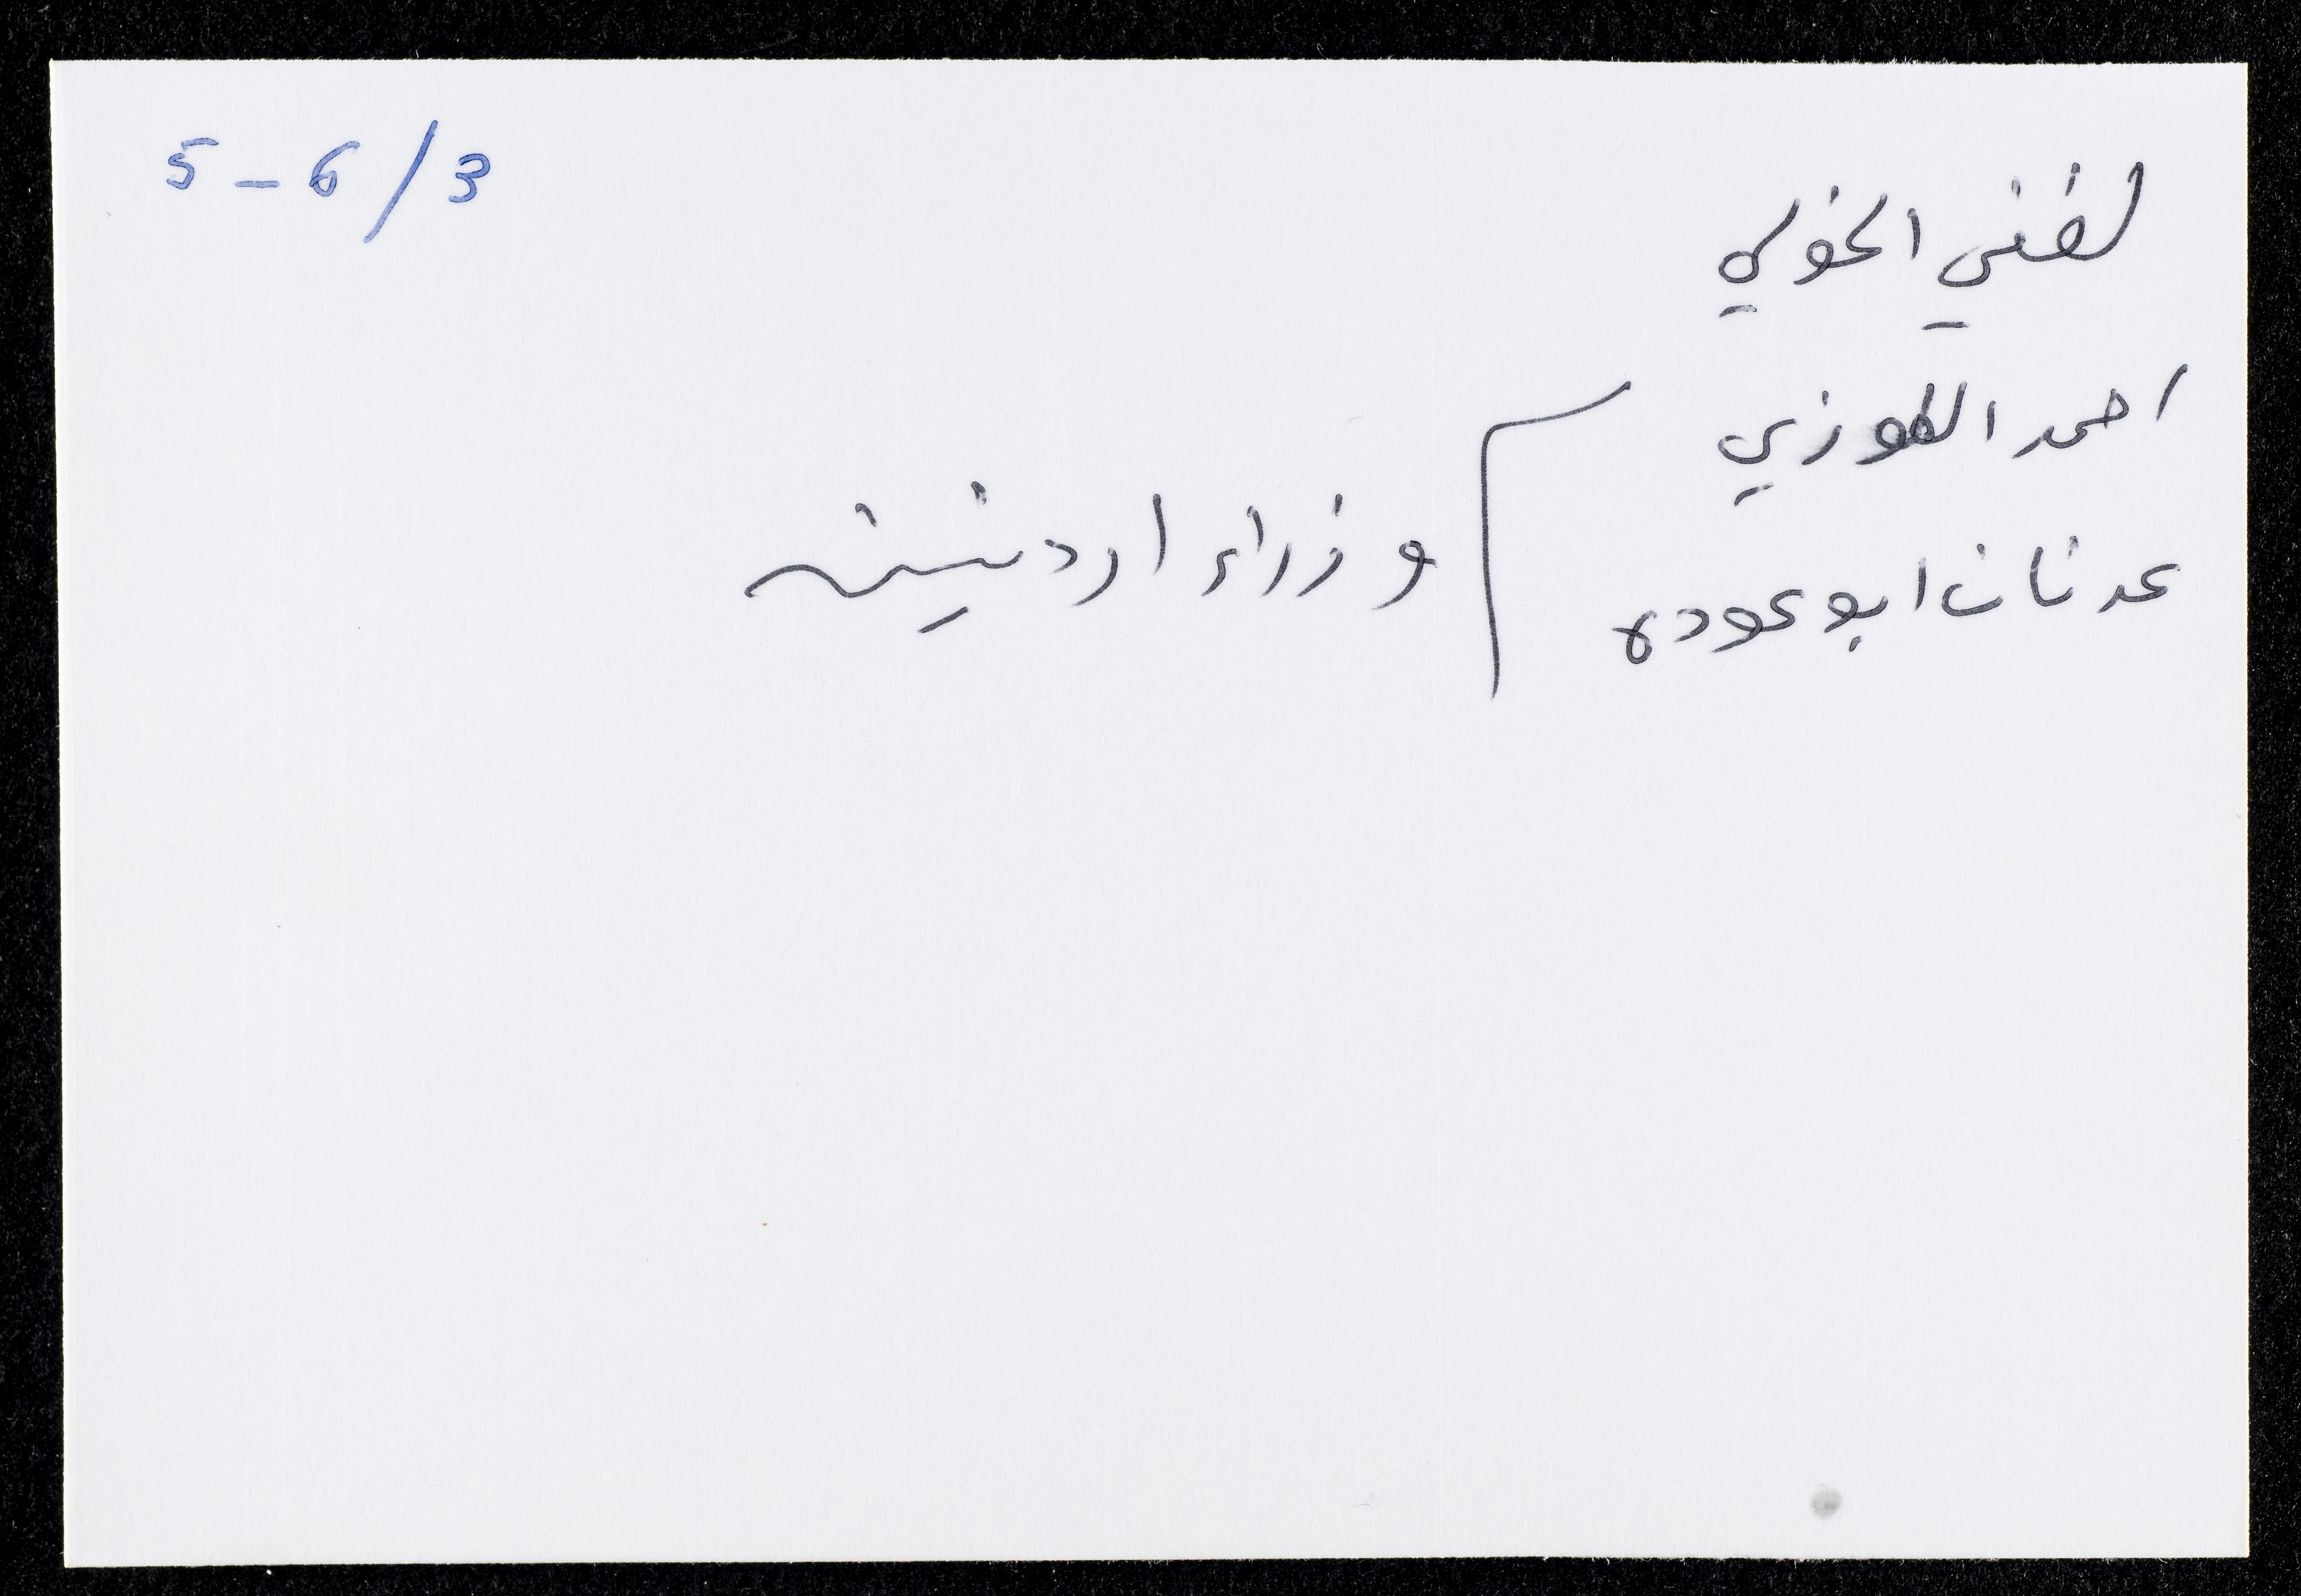 5 - 6 / 3
لفني الخولي
احمد اللوزي
عدنان ابو عوده
وزراء اردنيين